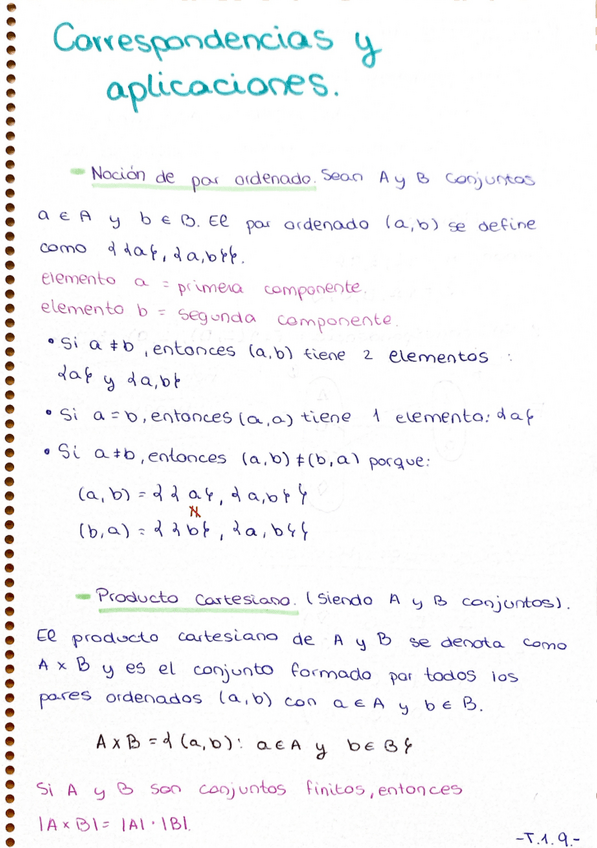 Correspondencias y
aplicaciones.
- Noción de par ordenado. Sean A y B conjuntos
a ∈ A y b ∈ B. El par ordenado (a,b) se define
como {{a}, {a,b}}.
elemento a = primera componente.
elemento b = segunda componente.
• Si a ≠ b, entonces (a,b) tiene 2 elementos :
{a} y {a,b}
• Si a = b, entonces (a,a) tiene 1 elemento: {a}
• Si a ≠ b, entonces (a,b) ≠ (b,a) porque:
(a,b) = {{a}, {a,b}}
(b,a) = {{b}, {a,b}}
- Producto Cartesiano. (Siendo A y B conjuntos).
El producto cartesiano de A y B se denota como
A x B y es el conjunto formado por todos los
pares ordenados (a,b) con a ∈ A y b ∈ B.
A x B = {(a,b): a ∈ A y b ∈ B}
Si A y B son conjuntos finitos, entonces
|A x B| = |A| · |B|.
-T.1.9.-